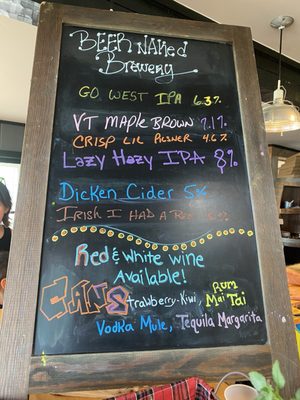 BEER NAKED
Brewery
GO WEST IPA 6.3%
VT MAPLE BROWN 7.1%
CRISP LIL PILZNER 4.6%
Lazy Hazy IPA 8%
Dicken Cider 5%
IRISH I HAD A
Red & White wine
Available!
CANS Strawberry-Kiwi, RUM
Mai Tai
Vodka Mule, Tequila Margarita